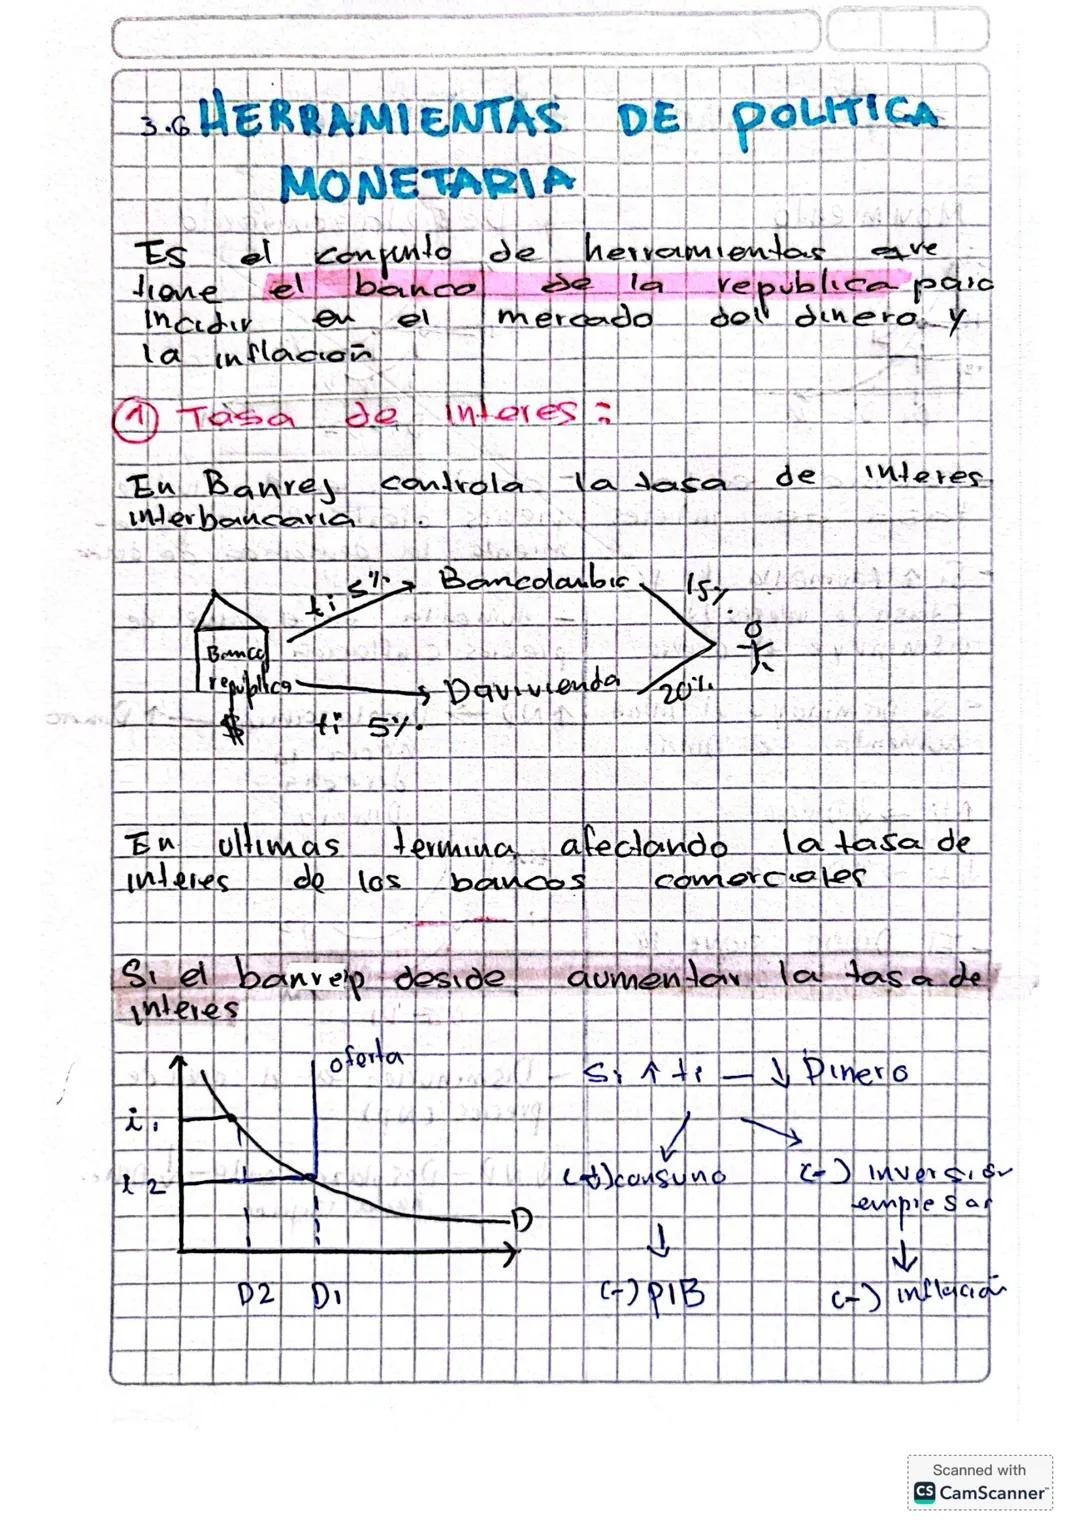 3.6 HERRAMIENTAS DE POLITICA
MONETARIA
Es el conjunto de herramientas que
tiene el banco de la republica para
incidir en el mercado del dinero y
la inflación
① Tasa de interes:
En Banrep controla la tasa de interes
interbancaria
ti 5% Bancolombia 15%
Banco
republica
$
ti 5% Davivienda 20%
En ultimas termina afectando la tasa de
interes de los bancos comerciales
Si el banrep deside aumentar la tasa de
interes
oferta
i1
i2
D
D2 D1
Si ↑ ti — ↓ Dinero
consumo
(-) inversión
empresar
(-) PIB
(-) inflación
Scanned with
CS CamScanner